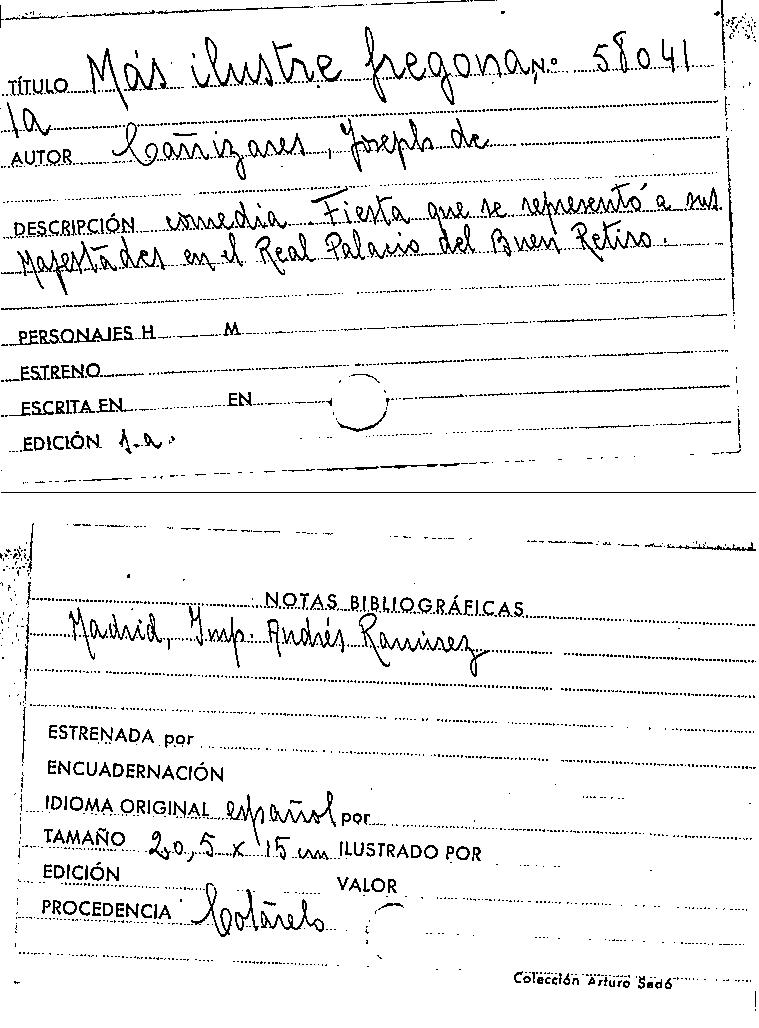 TÍTULO Más ilustre fregona, Nº 58041
la
AUTOR Cañizares, Joseph de
DESCRIPCIÓN comedia. Fiesta que se representó a sus
Majestades en el Real Palacio del Buen Retiro.
PERSONAJES H M
ESTRENO
ESCRITA EN EN
EDICIÓN s.a.
NOTAS BIBLIOGRÁFICAS
Madrid, Imp. Andrés Ramírez
ESTRENADA por
ENCUADERNACIÓN
IDIOMA ORIGINAL español por
TAMAÑO 20,5 x 15 cm ILUSTRADO POR
EDICIÓN VALOR
PROCEDENCIA Cotarelo
Colección Arturo Sedó